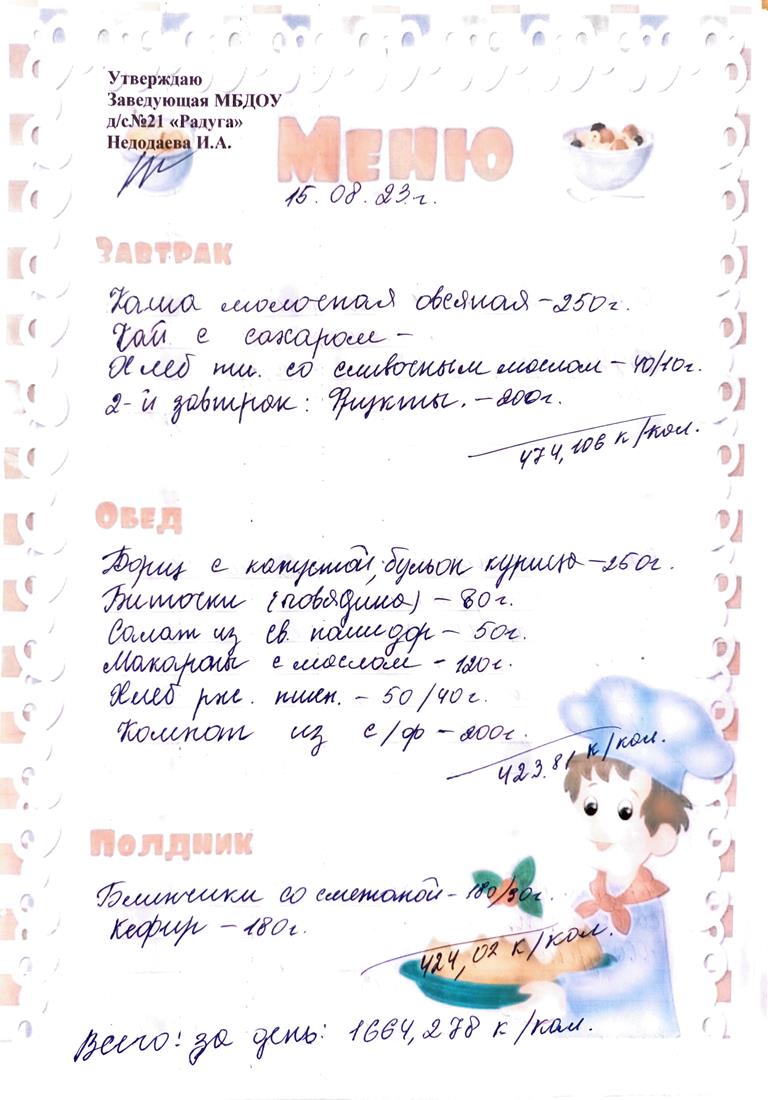 Утверждаю
Заведующая МБДОУ
д/с№21 «Радуга»
Недодаева И.А.
Меню
15.08.23г.
Завтрак
Каша молочная овсяная – 250г.
Чай с сахаром –
Хлеб пш. со сливочным маслом – 40/10г.
2-й завтрак: Фрукты. – 200г.
474,106 к/кал.
Обед
Борщ с капустой, бульон курица – 250г.
Биточки (говядина) – 80г.
Салат из св. помидор – 50г.
Макароны с маслом – 120г.
Хлеб рж. пшен. – 50/40г.
Компот из с/ф – 200г.
423.81 к/кал.
Полдник
Блинчики со сметаной – 180/30г.
Кефир – 180г.
424,02 к/кал.
Всего: за день: 1664,278 к/кал.